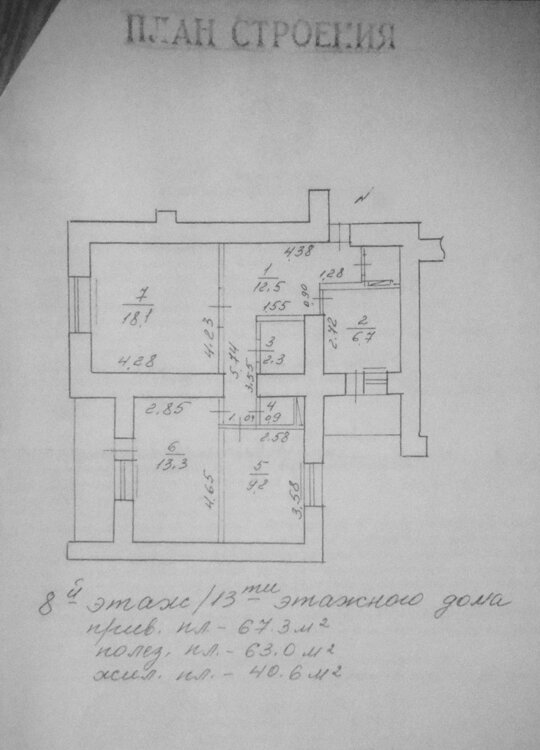 ПЛАН СТРОЕНИЯ
N
4.38
1
12.5
1.28
7
18.1
155
0.90
4.23
2
6.7
2.42
3
2.3
5.74
3.55
4.28
2.85
4
0.9
2.58
6
13.3
5
9.2
4.65
3.58
8й этаж/13ти этажного дома
прив. пл - 67.3 м2
полез. пл. - 63.0 м2
жил. пл. - 40.6 м2